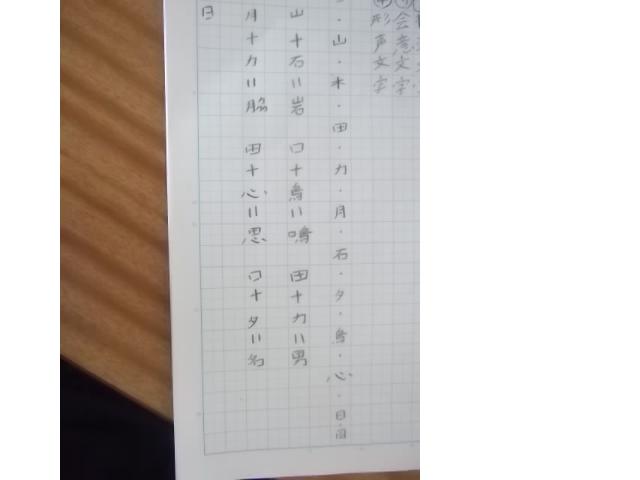 会意文字
形声文字
・山・木・田・力・月・石・夕・鳥・心・日・
山+石=岩 口+鳥=鳴 田+力=男
月+力=脇 田+心=思 口+夕=名
日